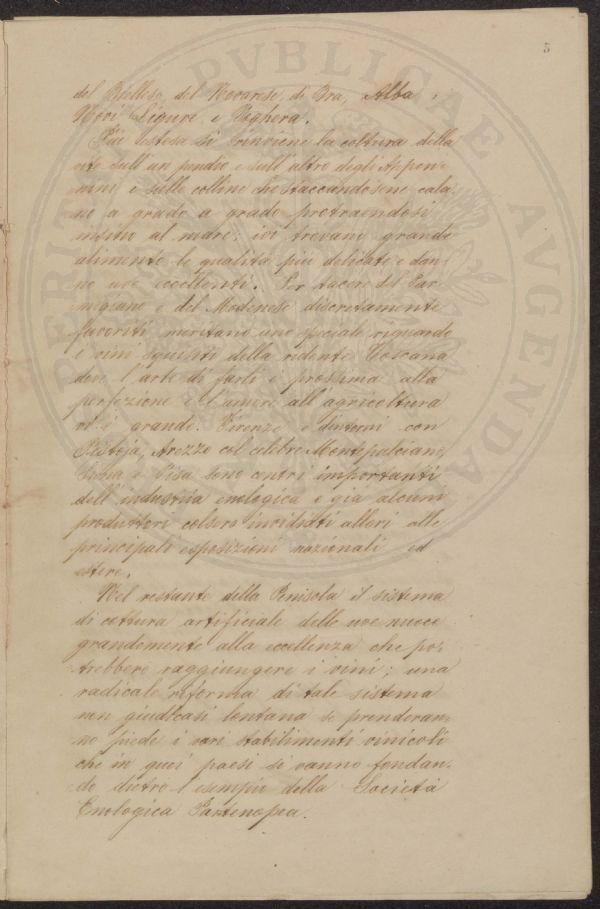 5
del Biellese, del Novarese, di Bra, Alba,
Novi Liguri e Voghera.
Più estesa si rinviene la coltura della
vite sull'un pendio e sull'altro degli Appen-
nini e sulle colline che staccandosene cala-
no a grado a grado protraendosi
insino al mare; ivi trovano grande
alimento le qualità più delicate e dan-
no uve eccellenti. Per tacere del Par-
migiano e del Modenese discretamente
favoriti, meritano uno speciale riguardo
i vini squisiti della ridente Toscana
dove l'arte di farli è prossima alla
perfezione e l'amore all'agricoltura
vi è grande. Firenze e dintorni con
Pistoja, Arezzo col celebre Montepulciano,
Siena e Pisa sono centri importanti
dell'industria enologica e già alcuni
produttori colsero invidiati allori alle
principali esposizioni nazionali ed
estere.
Nel restante della Penisola il sistema
di cottura artificiale delle uve nuoce
grandemente alla eccellenza che po-
trebbero raggiungere i vini; una
radicale riforma di tale sistema
non giudicasi lontana se prenderan-
no piede i vari stabilimenti vinicoli
che in quei paesi si vanno fondan-
do dietro l'esempio della Società
Enologica Partenopea.
PERITA PVBLICAE AVGENDA